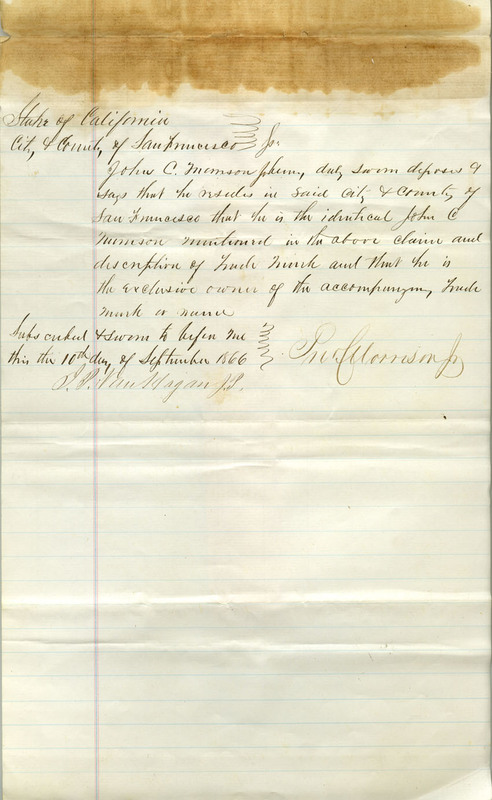 State of California
City & County of San Francisco } Ss
John C. Morrison being duly sworn deposes &
says that he resides in said City & County of
San Francisco that he is the identical John C
Morrison mentioned in the above claim and
description of Trade Mark and that he is
the exclusive owner of the accompanying Trade
mark or name
Subscribed & sworn to before me
this the 10th day of September 1866
Jno C Morrison Jr
J. P. Van Hagan J.P.